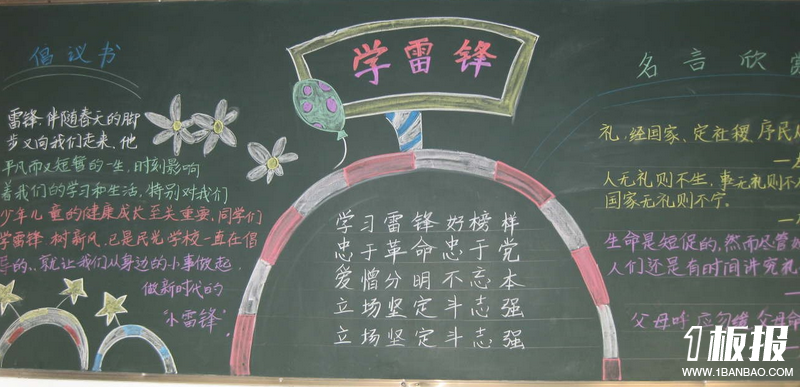 倡议书
雷锋,伴随春天的脚
步又向我们走来、他
平凡而又短暂的一生,时刻影响
着我们的学习和生活,特别对我们
少年儿童的健康成长至关重要,同学们
学雷锋 树新风,已是民光学校一直在倡
导的、就让我们从身边的小事做起,
做新时代的
“小雷锋”
学雷锋
学习雷锋好榜样
忠于革命忠于党
爱憎分明不忘本
立场坚定斗志强
立场坚定斗志强
名言欣赏
礼,经国家、定社稷,序民
人无礼则不生,事无礼则不
国家无礼则不宁。
生命是短促的,然而尽管
人们还是有时间讲究礼
父母呼 应勿缓 父母命
1板报
WWW.1BANBAO.COM